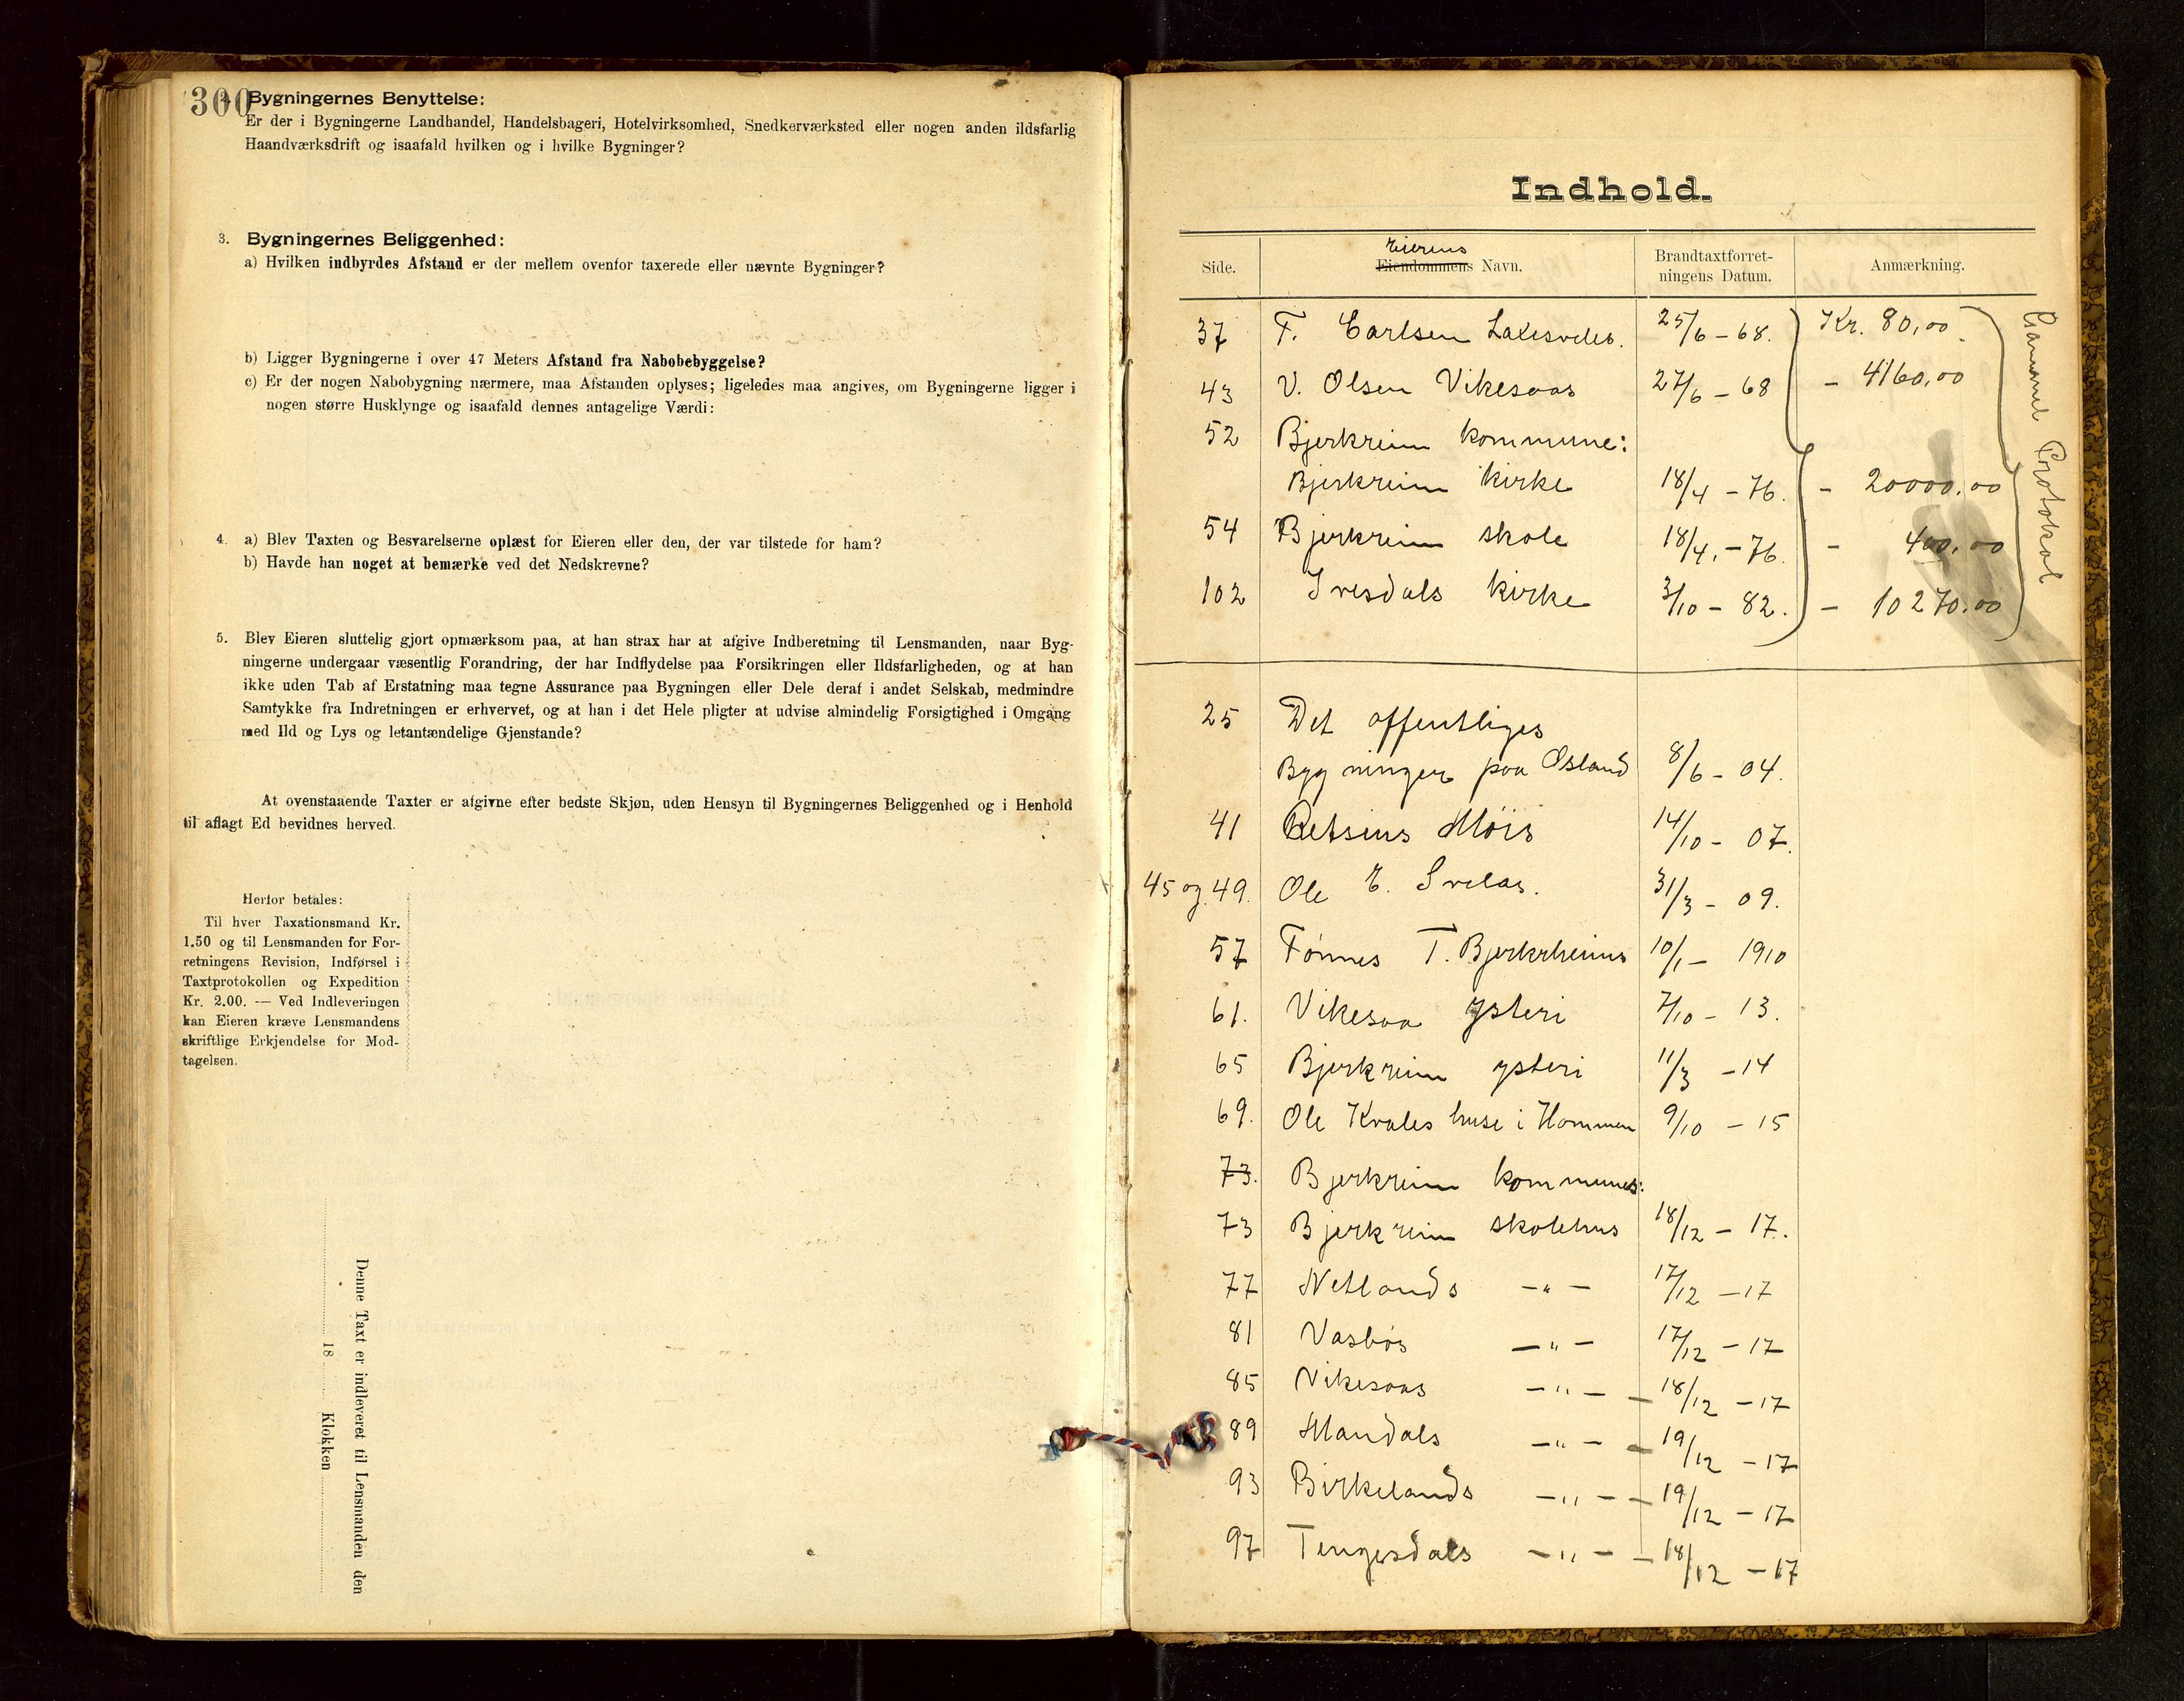 300
2. Bygningernes Benyttelse:
Er der i Bygningerne Landhandel, Handelsbageri, Hotelvirksomhed, Snedkerværksted eller nogen anden ildsfarlig
Haandværksdrift og isaafald hvilken og i hvilke Bygninger?
3. Bygningernes Beliggenhed:
a) Hvilken indbyrdes Afstand er der mellem ovenfor taxerede eller nævnte Bygninger?
b) Ligger Bygningerne i over 47 Meters Afstand fra Nabobebyggelse?
c) Er der nogen Nabobygning nærmere, maa Afstanden oplyses; ligeledes maa angives, om Bygningerne ligger i
nogen større Husklynge og isaafald dennes antagelige Værdi:
4. a) Blev Taxten og Besvarelserne oplæst for Eieren eller den, der var tilstede for ham?
b) Havde han noget at bemærke ved det Nedskrevne?
5. Blev Eieren sluttelig gjort opmærksom paa, at han strax har at afgive Indberetning til Lensmanden, naar Byg-
ningerne undergaar væsentlig Forandring, der har Indflydelse paa Forsikringen eller Ildsfarligheden, og at han
ikke uden Tab af Erstatning maa tegne Assurance paa Bygningen eller Dele deraf i andet Selskab, medmindre
Samtykke fra Indretningen er erhvervet, og at han i det Hele pligter at udvise almindelig Forsigtighed i Omgang
med Ild og Lys og letantændelige Gjenstande?
At ovenstaaende Taxter er afgivne efter bedste Skjøn, uden Hensyn til Bygningernes Beliggenhed og i Henhold
til aflagt Ed bevidnes herved.
Herfor betales:
Til hver Taxationsmand Kr.
1.50 og til Lensmanden for For-
retningens Revision, Indførsel i
Taxtprotokollen og Expedition
Kr. 2.00. — Ved Indleveringen
kan Eieren kræve Lensmandens
skriftlige Erkjendelse for Mod-
tagelsen.
Denne Taxt er indleveret til Lensmanden den
18 Klokken
Indhold.
Side. Eierens Eiendommens Navn. Brandtaxtforret-
ningens Datum. Anmærkning.
37 F. Carlsen 25/6 - 68. Kr. 80,00
43 V. Olsen Vikesaas 27/6 - 68 - 4160,00
52 Bjerkreim kommune:
Bjerkreim kirke 18/4 - 76. - 20000,00
54 Bjerkreim skole 18/4. - 76. - 400,00
102 Ivesdals kirke 3/10 - 82. - 10270,00
Gammel Protokol
25 Det offentliges
Bygninger paa Øsland 8/6 - 04.
41 Retsius Møis 14/10 - 07.
45 og 49. Ole E. Svelas. 31/3 - 09.
57 Tønnes T. Bjerkrheims 10/1 - 1910
61. Vikesaa ysteri 7/10 - 13.
65 Bjerkreim ysteri 11/3 - 14
69. Ole Kvales huse i Hommen 9/10 - 15
73. Bjerkreim kommunes:
73 Bjerkreim skolehus 18/12 - 17.
77 Netlands - " - 17/12 - 17
81 Vasbøs - " - 17/12 - 17
85 Vikesaas - " - - 18/12 - 17
89 Mandals - " - - 19/12 - 17
93 Birkelands - " - - 19/12 - 17
97 Tengesdals - " - - 18/12 - 17